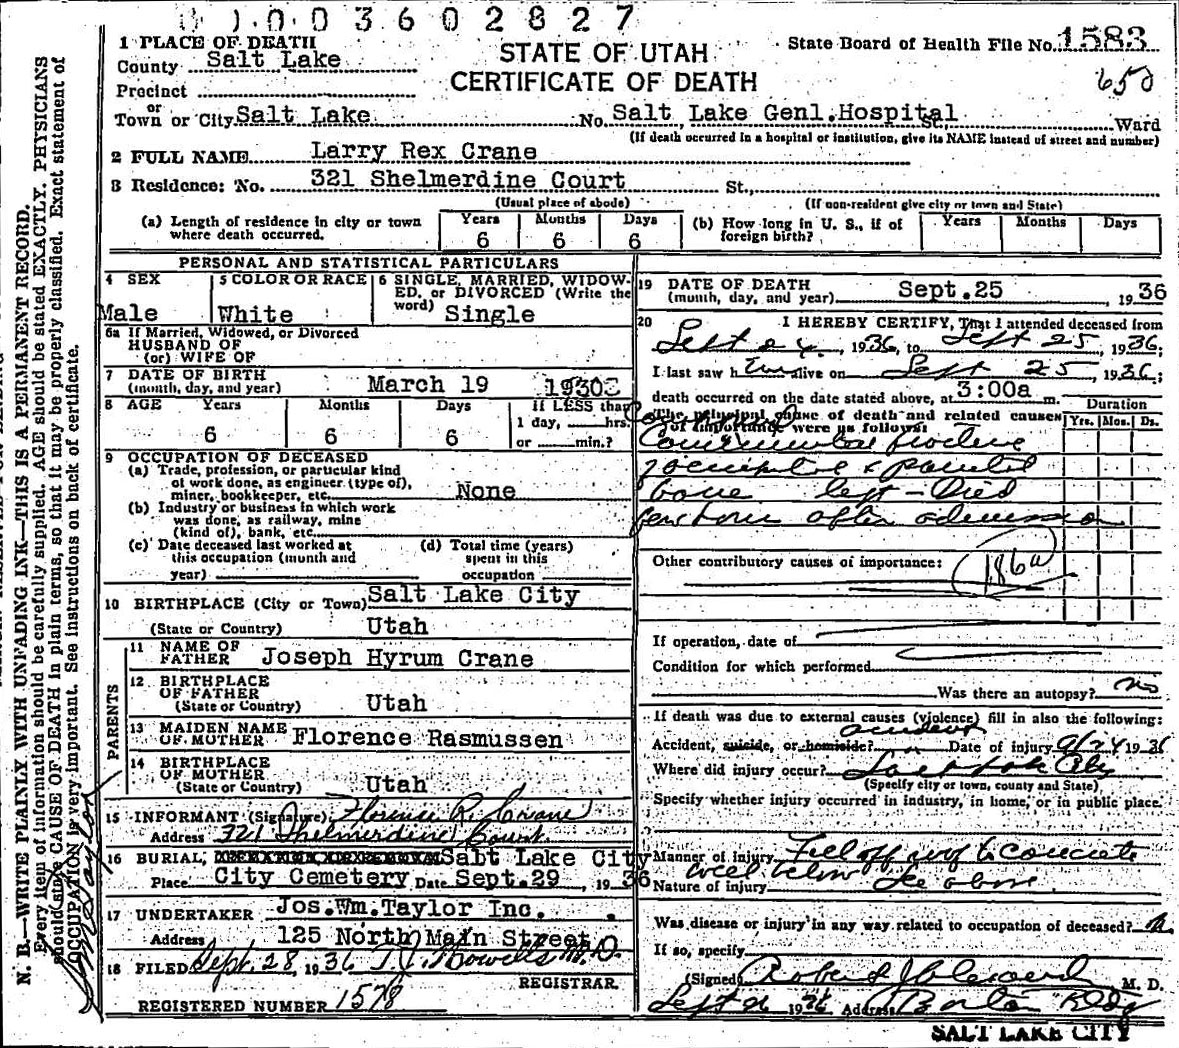 0 1 0 0 3 6 0 2 8 2 7
1 PLACE OF DEATH
County Salt Lake
Precinct
or
Town or City Salt Lake
STATE OF UTAH
CERTIFICATE OF DEATH
State Board of Health File No. 1583
650
No. Salt Lake Genl. Hospital St., Ward
(If death occurred in a hospital or institution, give its NAME instead of street and number)
2 FULL NAME Larry Rex Crane
3 Residence: No. 321 Shelmerdine Court St.,
(Usual place of abode) (If non-resident give city or town and State)
(a) Length of residence in city or town where death occurred. Years 6 Months 6 Days 6
(b) How long in U. S., if of foreign birth? Years Months Days
PERSONAL AND STATISTICAL PARTICULARS
4 SEX Male
5 COLOR OR RACE White
6 SINGLE, MARRIED, WIDOWED, or DIVORCED (Write the word) Single
6a If Married, Widowed, or Divorced
HUSBAND OF
(or) WIFE OF
7 DATE OF BIRTH
(month, day, and year) March 19 1930
8 AGE Years 6 Months 6 Days 6
If LESS than 1 day, hrs. or min.?
9 OCCUPATION OF DECEASED
(a) Trade, profession, or particular kind of work done, as engineer (type of), miner, bookkeeper, etc. None
(b) Industry or business in which work was done, as railway, mine (kind of), bank, etc.
(c) Date deceased last worked at this occupation (month and year)
(d) Total time (years) spent in this occupation
10 BIRTHPLACE (City or Town) Salt Lake City
(State or Country) Utah
PARENTS
11 NAME OF FATHER Joseph Hyrum Crane
12 BIRTHPLACE OF FATHER
(State or Country) Utah
13 MAIDEN NAME OF MOTHER Florence Rasmussen
14 BIRTHPLACE OF MOTHER
(State or Country) Utah
15 INFORMANT (Signature) Florence R. Crane
Address 321 Shelmerdine Court
16 BURIAL, Salt Lake City
Place City Cemetery Date Sept. 29, 1936
17 UNDERTAKER Jos. Wm. Taylor Inc.
Address 125 North Main Street
18 FILED Sept. 28, 1936
REGISTRAR
REGISTERED NUMBER 1578
19 DATE OF DEATH
(month, day, and year) Sept. 25, 1936
20 I HEREBY CERTIFY, That I attended deceased from
Sept 24, 1936, to Sept 25, 1936;
I last saw him alive on Sept 25, 1936;
death occurred on the date stated above, at 3:00a m.
The principal cause of death and related causes of importance were as follows:
Duration
Yrs. Mos. Ds.
bone left - Died
after admission
Other contributory causes of importance: 186a
If operation, date of
Condition for which performed
Was there an autopsy? no
If death was due to external causes (violence) fill in also the following:
accident
Accident, suicide, or homicide? Date of injury 9/24 1936
Where did injury occur? Salt Lake City
(Specify city or town, county and State)
Specify whether injury occurred in industry, in home, or in public place.
Manner of injury Fell off roof to concrete
below
Nature of injury See above
Was disease or injury in any way related to occupation of deceased? no
If so, specify
(Signed) Robert M. D.
Sept 26 1936 Address Bldg
SALT LAKE CITY
N. B.—WRITE PLAINLY WITH UNFADING INK—THIS IS A PERMANENT RECORD.
Every item of information should be carefully supplied. AGE should be stated EXACTLY. PHYSICIANS
should state CAUSE OF DEATH in plain terms, so that it may be properly classified. Exact statement of
OCCUPATION is very important. See instructions on back of certificate.